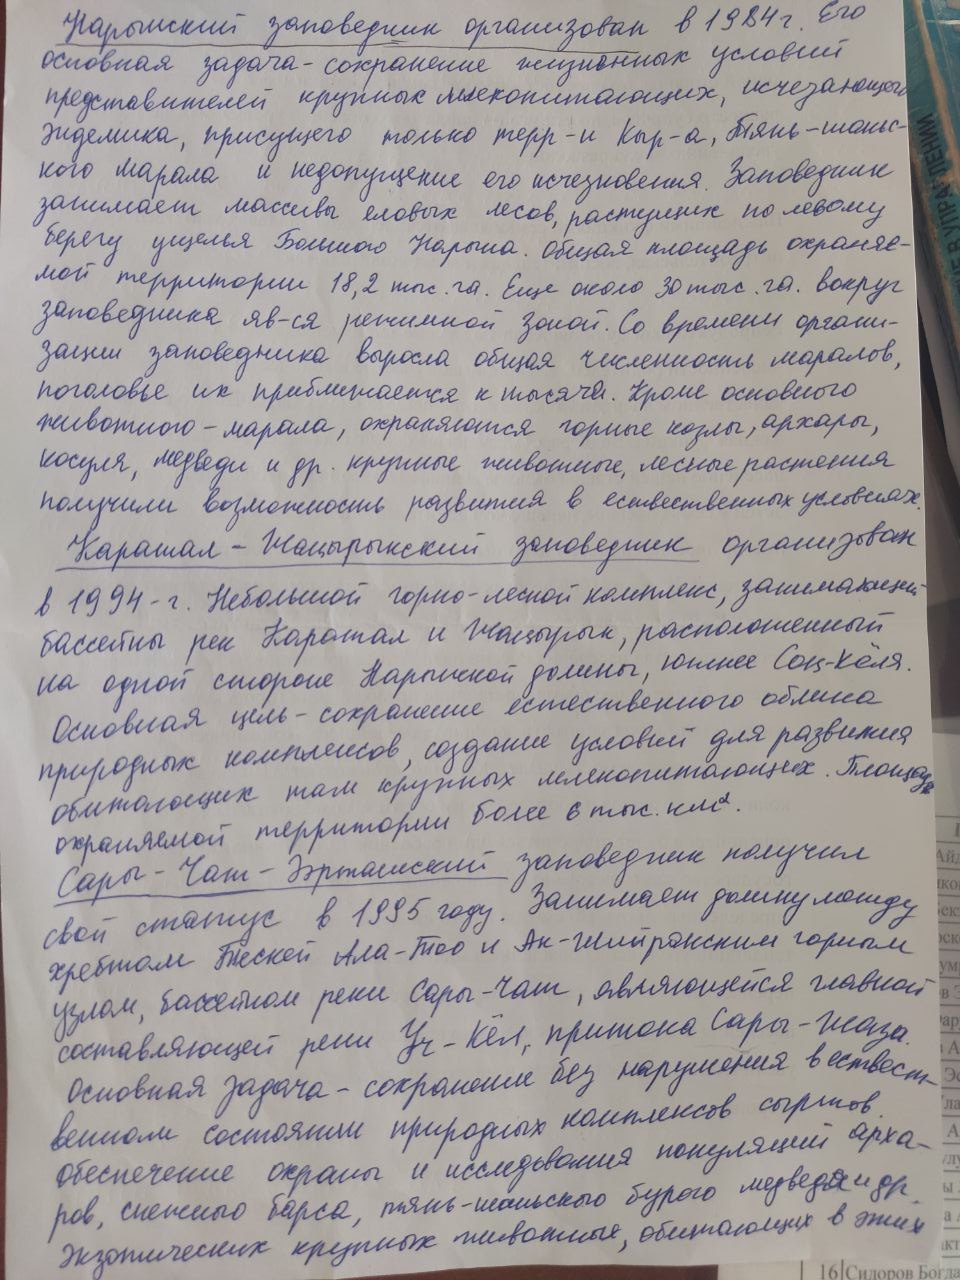 Нарынский заповедник организован в 1984г. Его
основная задача-сохранение жизненных условий
представителей крупных млекопитающих, исчезающего
эндемика, присущего только терр-и Кыр-а, Тянь-шаньс-
кого марала и недопущение его исчезновения. Заповедник
занимает массивы еловых лесов, растущих по левому
берегу ущелья Большого Нарына. Общая площадь охраняе-
мой территории 18,2 тыс. га. Еще около 30 тыс. га. вокруг
заповедника яв-ся режимной зоной. Со времени органи-
зации заповедника выросла общая численность маралов,
поголовье их приближается к тысяча. Кроме основного
животного-марала, охраняются горные козлы, архары,
косуля, медведи и др. крупные животные, лесные растения
получили возможность развития в естественных условиях.
Каратал-Жапырыкский заповедник организован
в 1994-г. Небольшой горно-лесной комплекс, занимающий
бассейны рек Каратал и Жапырык, расположенный
на одной стороне Нарынской долины, южнее Соң-Көля.
Основная цель-сохранение естественного облика
природных комплексов, создание условий для развития
обитающих там крупных млекопитающих. Площадь
охраняемой территории более 6 тыс. км².
Сары-Чат-Ээрташский заповедник получил
свой статус в 1995 году. Занимает долину между
хребтом Тескей Ала-Тоо и Ак-Шыйракским горным
узлом, бассейном реки Сары-Чат, являющейся главной
составляющей реки Уч-Көл, притока Сары-Жаза.
Основная задача-сохранение без нарушения в естест-
венном состоянии природных комплексов сыртов.
обеспечение охраны и исследования популяций арха-
ров, снежного барса, тянь-шаньского бурого медведя и др.
экзотических крупных животные, обитающих в этих
В УПРАВЛЕНИИ
16 Сидоров Богда